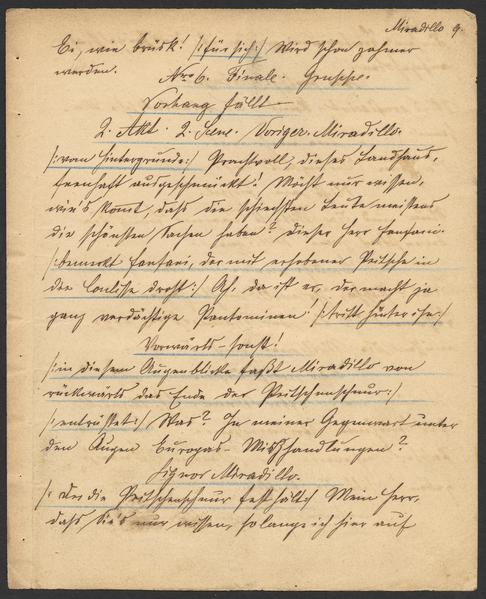 Miradillo 9.
Ei, wie brüsk! /:für sich:/ Wird schon zahmer
werden. Nro 6. Finale. Gruppe.
Vorhang fällt
2. Akt. 2. Scene. Voriger. Miradillo.
/:vom Hintergrunde:/ Prachtvoll, dieses Landhaus,
feenhaft ausgeschmückt! Möcht nur wissen,
wie's kommt, dass die schiechsten Leute meistens
die schönsten Sachen haben? Dieser Herr Fanfani.
/:bemerkt Fanfani, der mit erhobener Peitsche in
die Coulisse droht:/ Ah, da ist er, der macht ja
ganz verdächtige Pantominen! /:tritt hinter ihn:/
Vorwärts – sonst!
/:in diesem Augenblicke faßt Miradillo von
rückwärts das Ende der Peitschenschnur:/
/:entrüstet:/ Was? In meiner Gegenwart unter
den Augen Europas – Mißhandlungen?
Signor Miradillo.
/:der die Peitschenschnur festhält:/ Mein Herr,
dass Sie's nur wissen, so lange ich hier auf